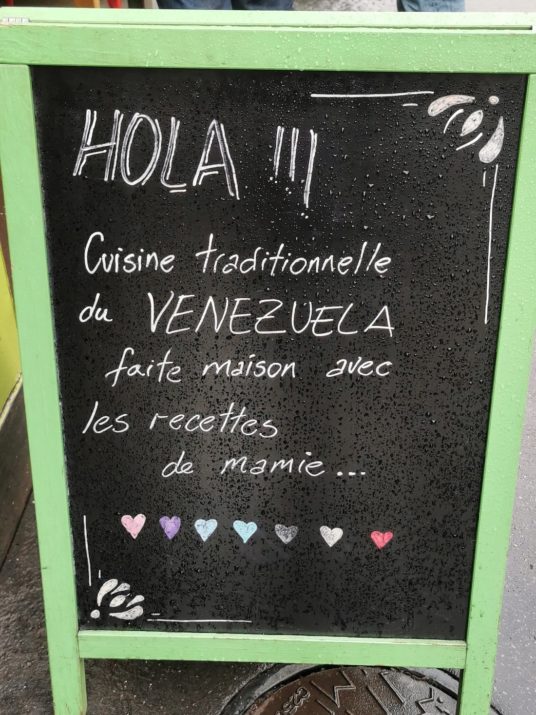 HOLA !!!
Cuisine traditionnelle
du VENEZUELA
faite maison avec
les recettes
de mamie...